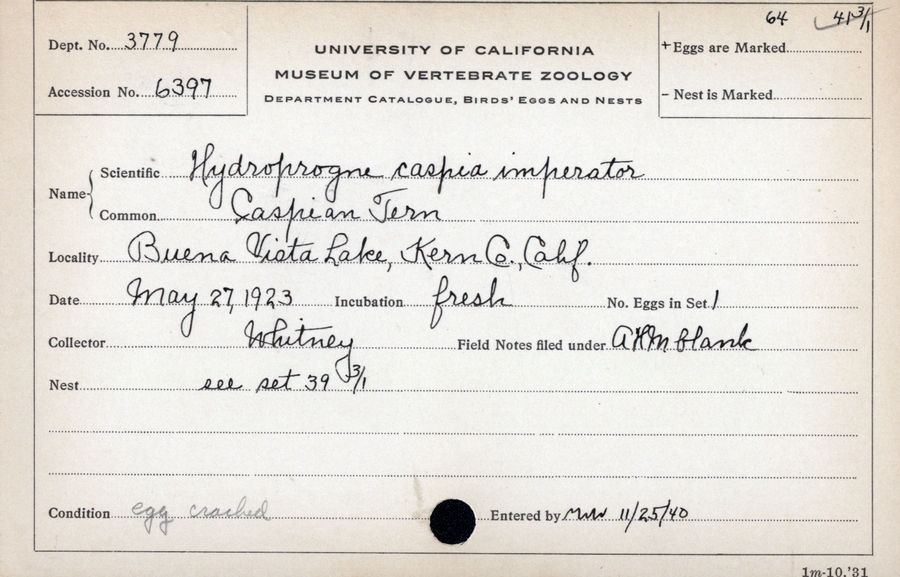 64 41 3/1
Dept. No. 3779
Accession No. 6397
UNIVERSITY OF CALIFORNIA
MUSEUM OF VERTEBRATE ZOOLOGY
DEPARTMENT CATALOGUE, BIRDS' EGGS AND NESTS
+ Eggs are Marked
- Nest is Marked
Name { Scientific Hydroprogne caspia imperator
Common Caspian Tern
Locality Buena Vista Lake, Kern Co., Calif.
Date May 27, 1923 Incubation fresh No. Eggs in Set 1
Collector Whitney Field Notes filed under AHM blank
Nest see set 39 3/1
Condition egg cracked Entered by 11/25/40
1m-10,'31